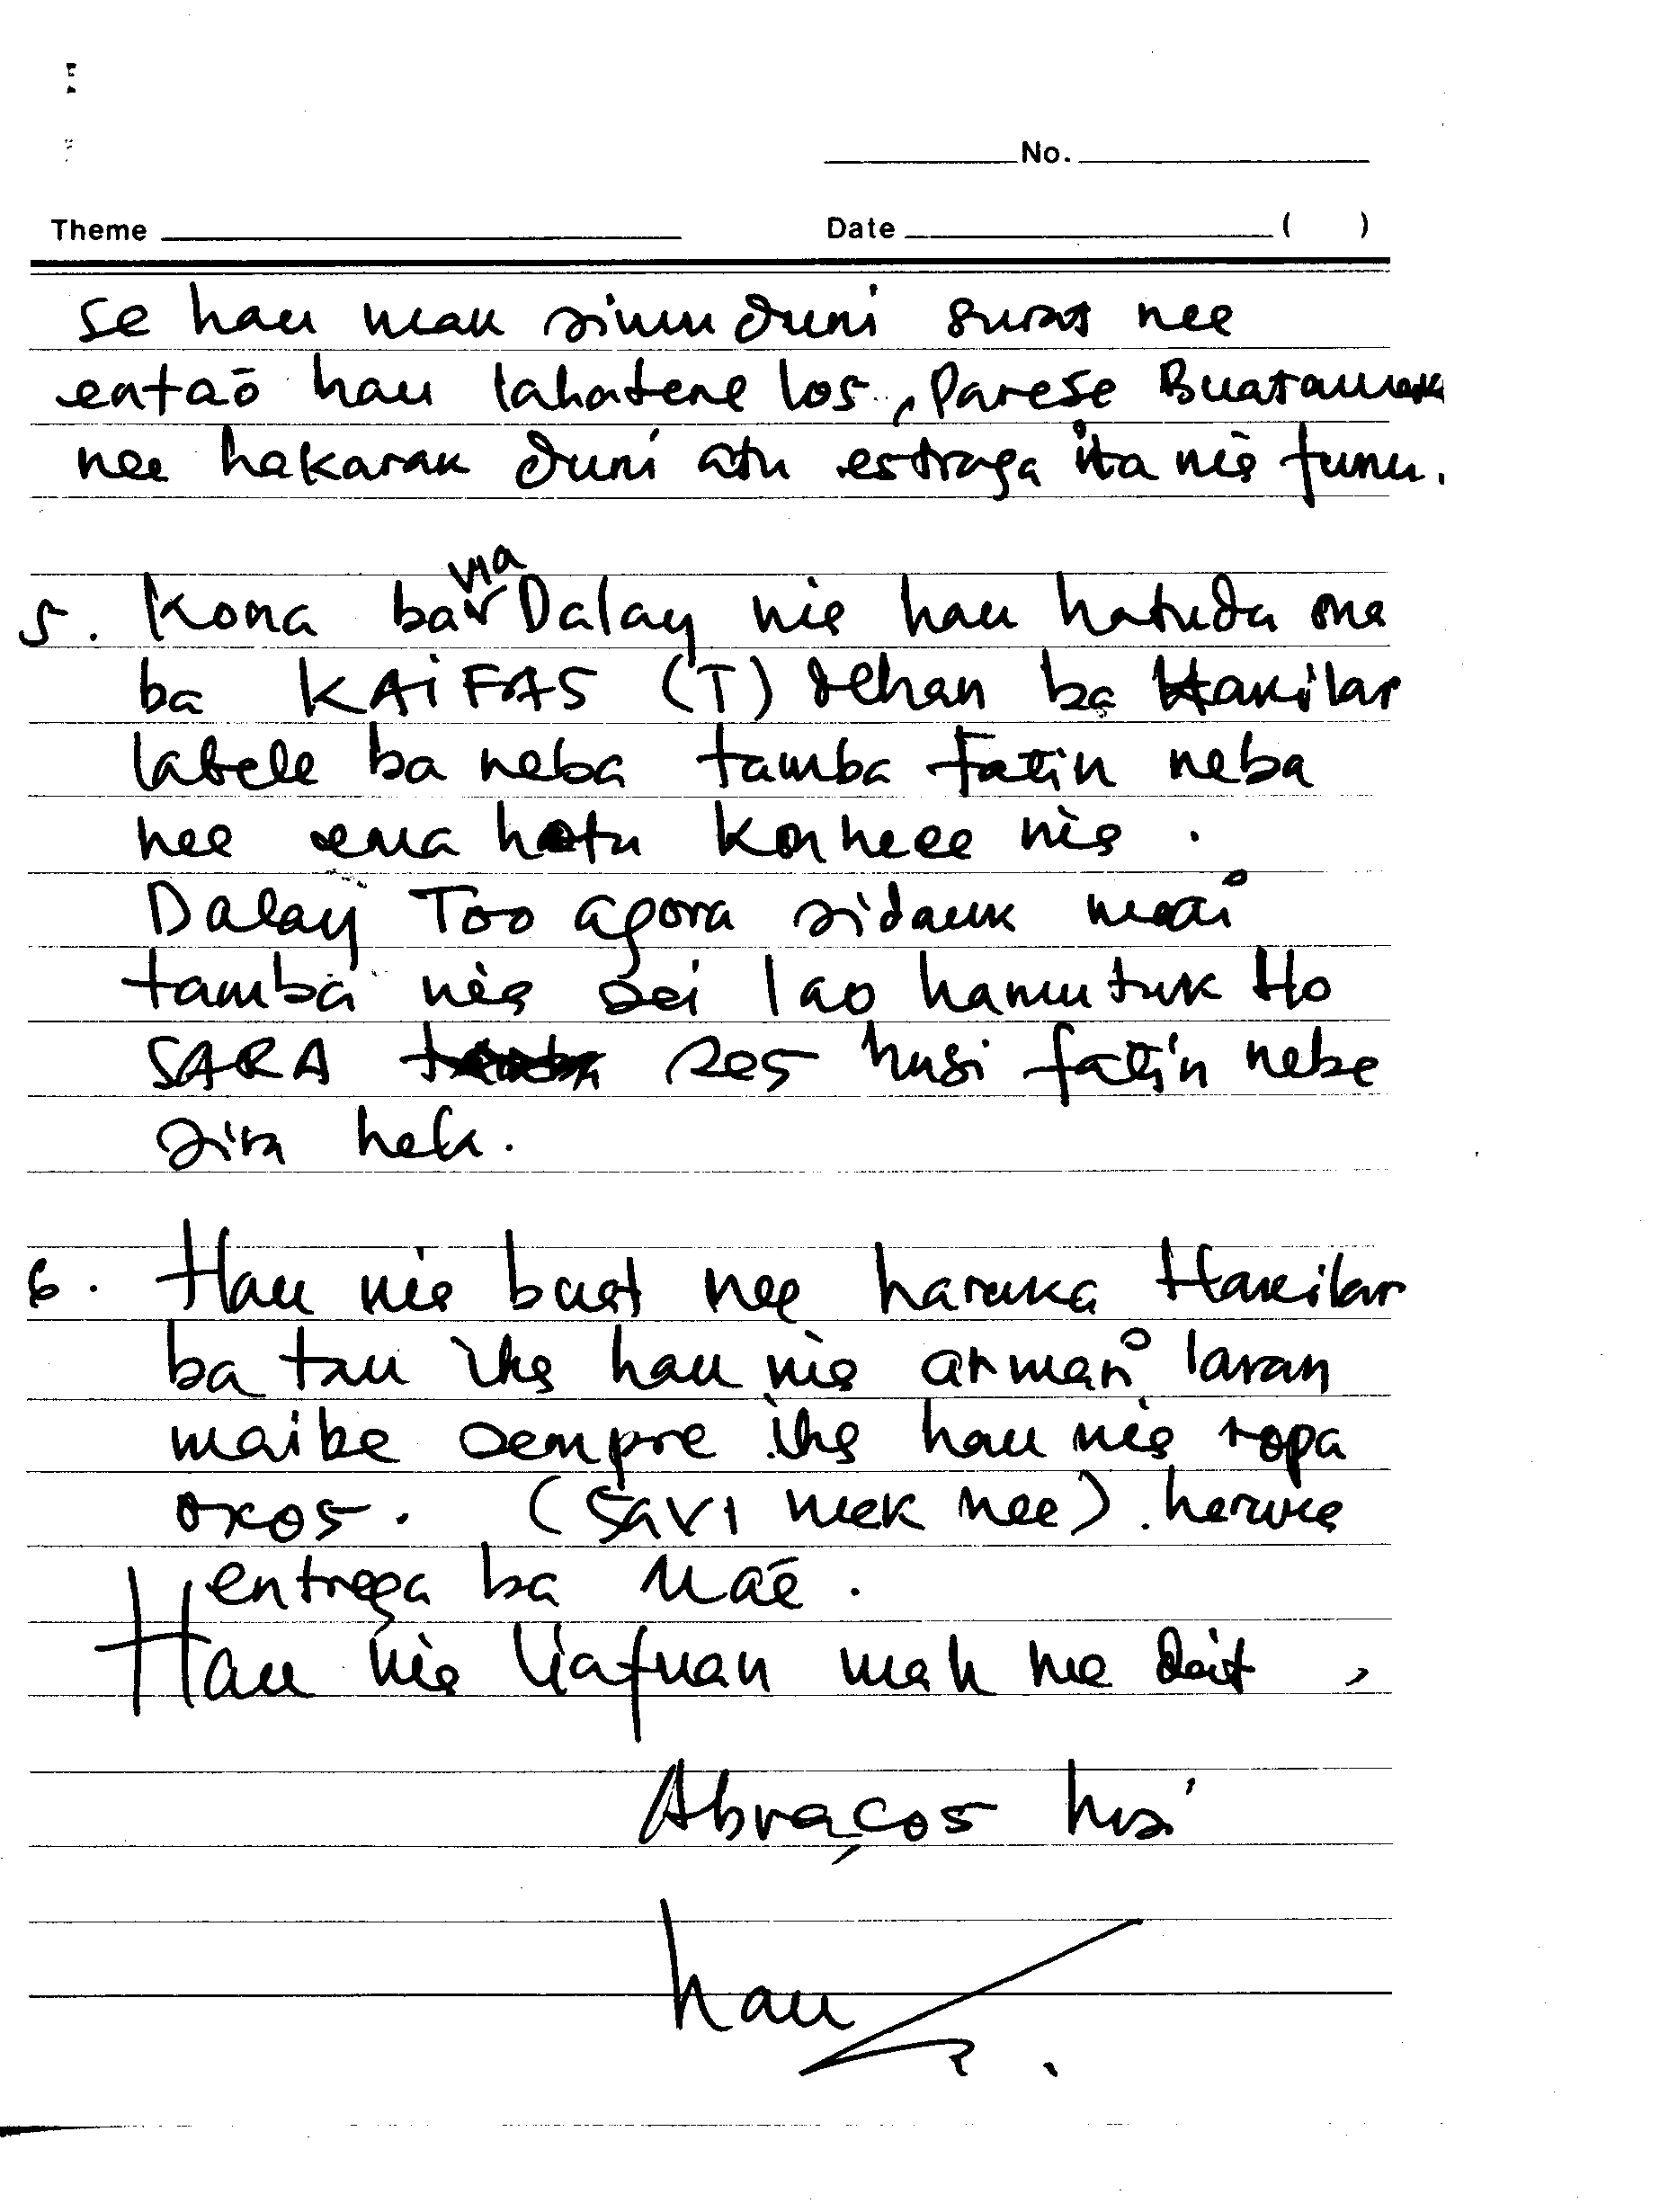 No.
Theme Date ( )
se hau mak simu duni surat nee
entaõ hau lahatene los, Parese Buat
nee hakarak duni atu estraga ita nie funu.
5. Kona ba via Dalay nie hau hatuda ona
ba KAiFAS (T) dehan ba Hakilar
labele ba neba tamba Fatin neba
nee ema hotu konhece nie.
Dalay Too agora sidauk mai
tamba nie sei lao hamutuk Ho
SARA res husi fatin nebe
sira hela.
6. Hau nie buat nee haruka Hakilar
ba tau iha hau nie armari laran
maibe sempre iha hau nie ropa
oxos. (SAVI mak nee). haruka
entrega ba Maē.
Hau nie liafuan mak ne deit,
Abraços husi
hau